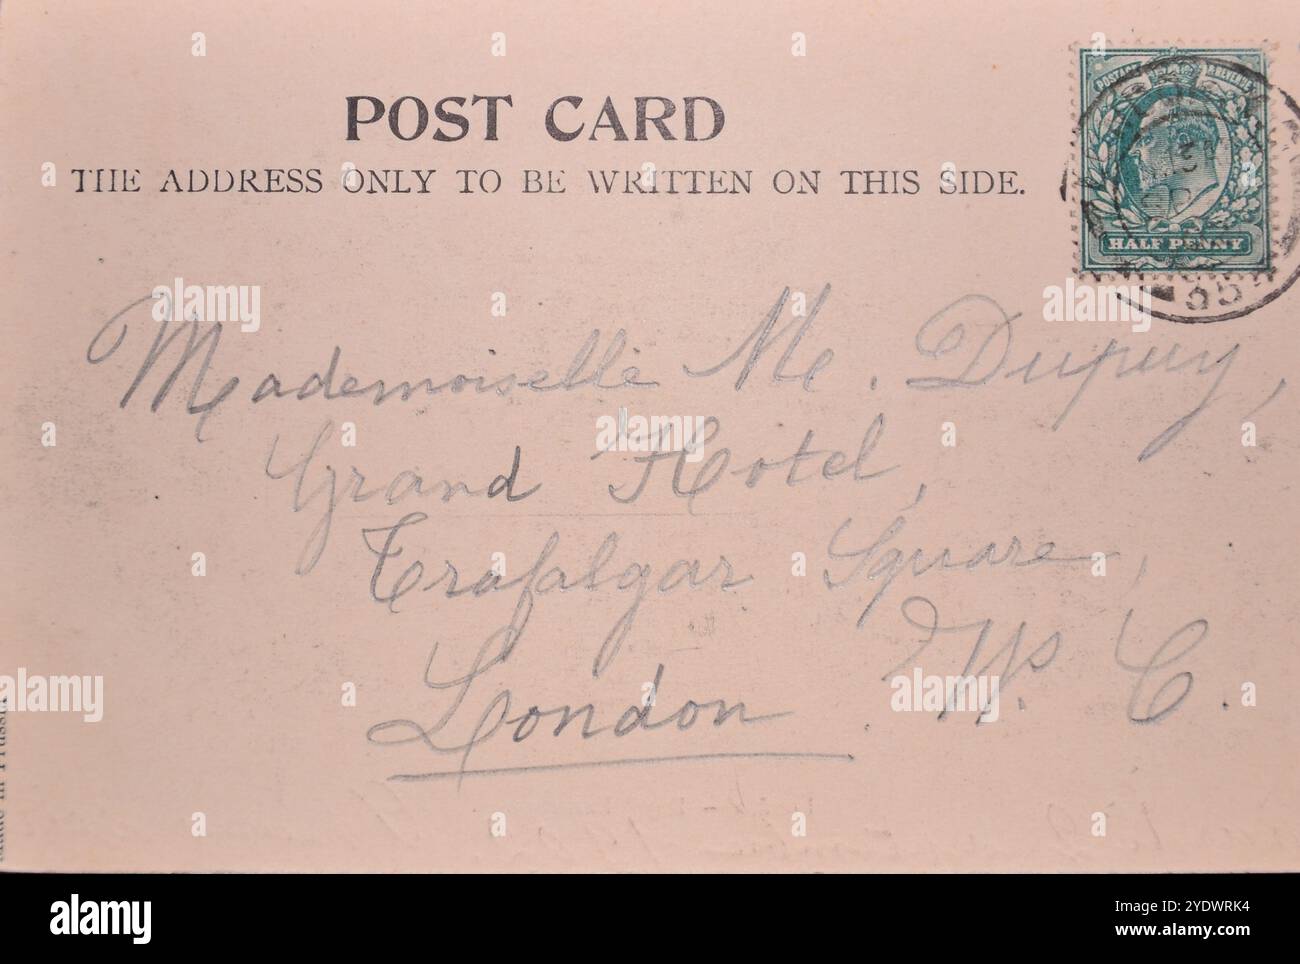 POST CARD
THE ADDRESS ONLY TO BE WRITTEN ON THIS SIDE.
POSTAGE & REVENUE
HALF PENNY
Mademoiselle M. Dupuy,
Grand Hotel,
Trafalgar Square,
London W. C.
Made in Prussia
alamy
Image ID: 2YDWRK4
www.alamy.com